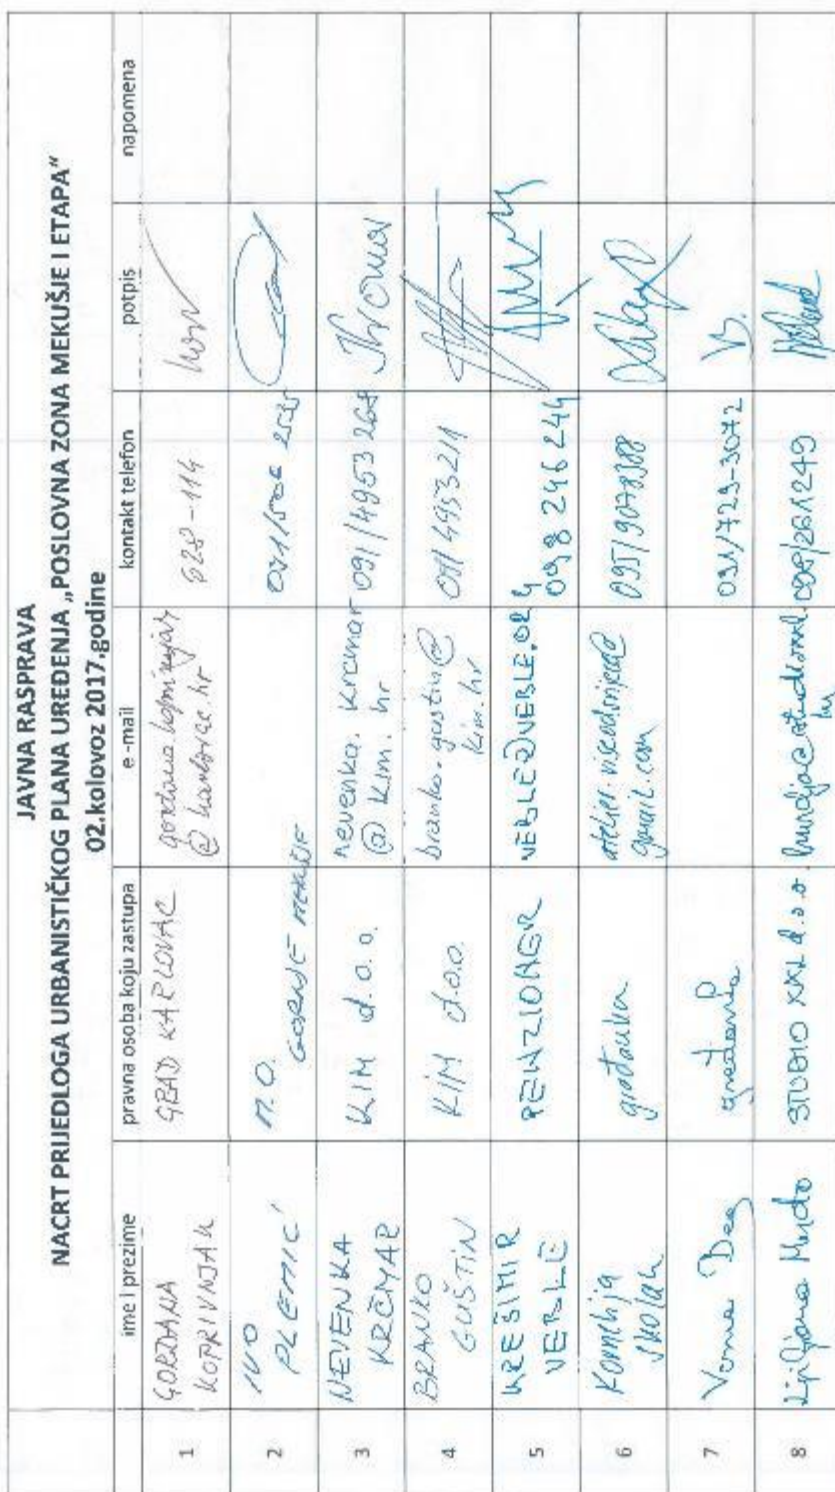 JAVNA RASPRAVA
NACRT PRIJEDLOGA URBANISTIČKOG PLANA UREĐENJA „POSLOVNA ZONA MEKUŠJE I ETAPA“
02.kolovoz 2017.godine
ime i prezime pravna osoba koju zastupa e-mail kontakt telefon potpis napomena
1 GORDANA KOPRIVNJAK GRAD KARLOVAC gordana.koprivnjak @ karlovac.hr 628-114
2 IVO PLEMIĆ M.O. GORNJE MEKUŠJE
3 NEVENKA KRČMAR KIM d.o.o. nevenka.krcmar @ kim.hr 091/4953268
4 BRANKO GUŠTIN KIM d.o.o. branko.gustin@ kim.hr 091 4953211
5 KREŠIMIR VERLE PENZIONER 098 246 244
6 Kornelija građanka gmail.com 095/9078388
7 građanka 091/723-3072
8 Ljiljana STUDIO XXL d.o.o. 098/261249